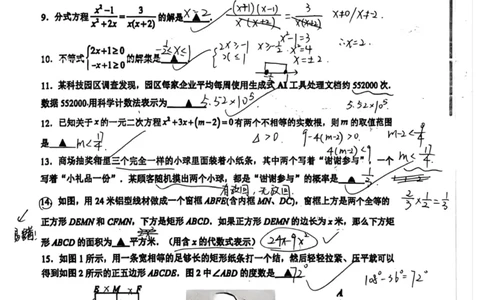 9. 分式方程 (x²-1)/(x²+2x) = 3/(x(x+2)) 的解是 ▲ x=2 (x+1)(x-1)/x(x+2) = 3/x(x+2) x≠0/x≠-2.
x²-1=3
x²=4 ∴x=2.
x=±2
10. 不等式 {2x+1≥0 -x+1≥0 的解集是 ▲ -1/2≤x≤1 {2x≥-1 x≥-1/2 x≤1
11. 某科技园区调查发现，园区每家企业平均每周使用生成式 AI 工具处理文档约 552000 次.
数据 552000 用科学计数法表示为 ▲ 5.52×10⁵ 5.52×10⁵
12. 已知关于 x 的一元二次方程 x²+3x+(m-2)=0 有两个不相等的实数根，则 m 的取值范围
是 ▲ m<17/4 Δ>0. 9-4(m-2)>0. m-2<9/4
4(m-2)<9 m<17/4.
13. 商场抽奖箱里三个完全一样的小球里面装着小纸条，其中两个写着“谢谢参与”，一个
写着“小礼品一份”. 某顾客随机摸出两个小球，都是“谢谢参与”的概率是 ▲
有放回，无放回 2/3×1/2=1/3
14. 如图，用 24 米铝型线材做成一个窗框 ABFE(含内框 MN、DC)，窗框上方是两个全等的
正方形 DEMN 和 CFMN，下方是矩形 ABCD. 如果正方形 DEMN 的边长为 x 米，那么下方矩
形 ABCD 的面积为 ▲ 平方米.（用含 x 的代数式表示） 24x-9x²
15. 如图 1 所示，用一条宽相等的足够长的矩形纸条打一个结，然后轻轻拉紧、压平就可以
得到如图 2 所示的正五边形 ABCDE. 图 2 中∠ABD 的度数是 ▲ 72° 108°-36°=72°
E x M x F
A